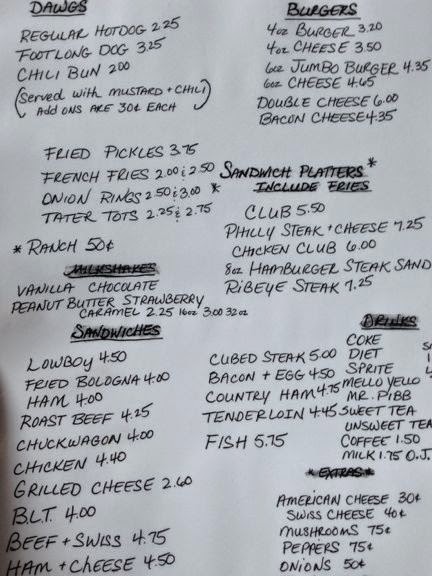 DAWGS
REGULAR HOTDOG 2.25
FOOTLONG DOG 3.25
CHILI BUN 2.00
(SERVED WITH MUSTARD + CHILI
ADD ONS ARE 30¢ EACH)
BURGERS
4oz BURGER 3.20
4oz CHEESE 3.50
6oz JUMBO BURGER 4.35
6oz CHEESE 4.65
DOUBLE CHEESE 6.00
BACON CHEESE 4.35
FRIED PICKLES 3.75
FRENCH FRIES 2.00 & 2.50
ONION RINGS 2.50 & 3.00 *
TATER TOTS 2.25 & 2.75
* RANCH 50¢
SANDWICH PLATTERS *
INCLUDE FRIES
CLUB 5.50
PHILLY STEAK + CHEESE 7.25
CHICKEN CLUB 6.00
8oz HAMBURGER STEAK SAND
RIBEYE STEAK 7.25
MILKSHAKES
VANILLA CHOCOLATE
PEANUT BUTTER STRAWBERRY
CARAMEL 2.25 16oz 3.00 32oz
SANDWICHES
LOWBOY 4.50
FRIED BOLOGNA 4.00
HAM 4.00
ROAST BEEF 4.25
CHUCKWAGON 4.00
CHICKEN 4.40
GRILLED CHEESE 2.60
B.L.T. 4.00
BEEF + SWISS 4.75
HAM + CHEESE 4.50
CUBED STEAK 5.00
BACON + EGG 4.50
COUNTRY HAM 4.75
TENDERLOIN 4.45
FISH 5.75
DRINKS
COKE
DIET
SPRITE
MELLO YELLO
MR. PIBB
SWEET TEA
UNSWEET TEA
COFFEE 1.50
MILK 1.75 O.J.
* EXTRAS *
AMERICAN CHEESE 30¢
SWISS CHEESE 40¢
MUSHROOMS 75¢
PEPPERS 75¢
ONIONS 50¢